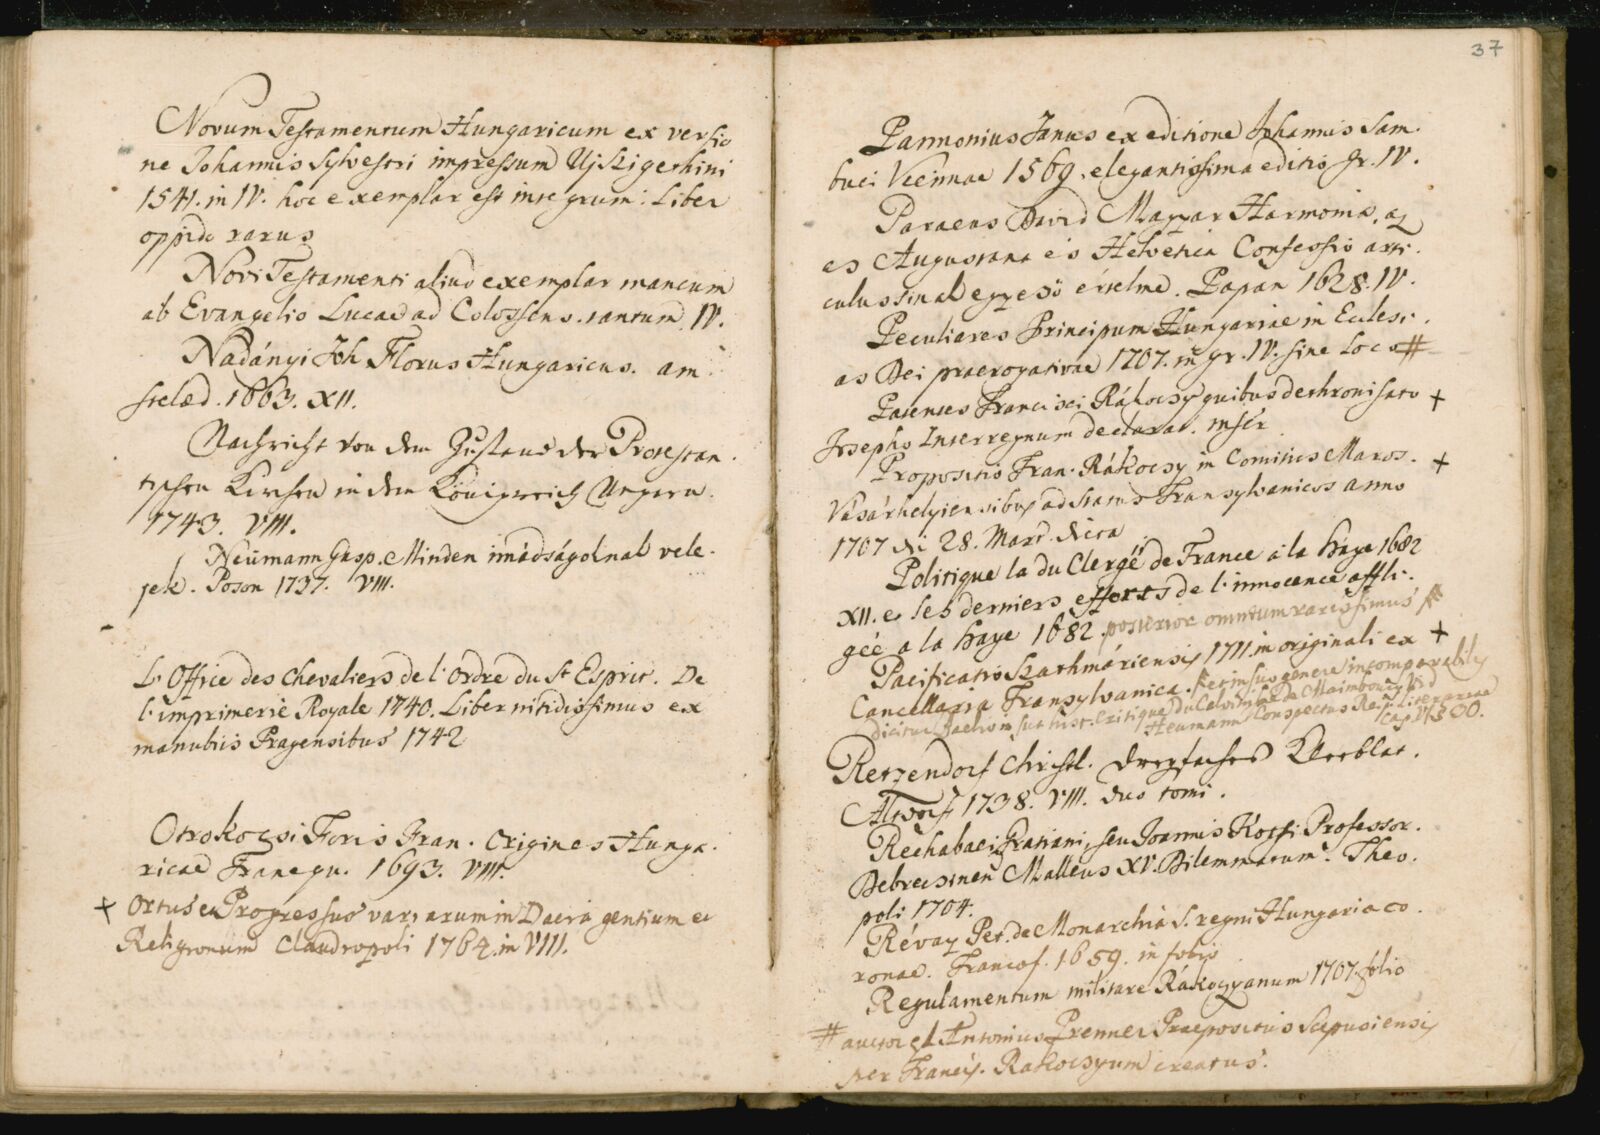 Novum Testamentum Hungaricum ex versio
ne Johannis Sylvestri impressum Ujszigethini
1541. in IV. hoc exemplar est integrum. Liber
oppido rarus
Novi Testamenti aliud exemplar mancum
ab Evangelio Lucae ad Colossens. tantum. IV.
Nadányi Joh Florus Hungaricus. Am
stelæd. 1663. XII.
Nachricht von dem Zustand der Protestan.
tischen Kirchen in dem Königreich Ungern.
1743. VIII.
Neümann Gasp. Minden imádságoknak vele.
jek. Poson 1737. VIII.
L'Office des Chevaliers de l'Ordre du St Esprit. De
l'imprimerie Royale 1740. Liber nitidissimus ex
manubiis Pragensibus 1742
Otrokocsi Foris Fran. Origines Hunga.
ricae Franequ. 1693. VIII.
+ Ortus et Progressus variarum in Dacia gentium et
Religionum Claudiopoli 1764. in VIII.
37
Pannonius Janus ex editione Johannis Sam.
buci Viennae 1569. elegantissima editio gr. IV.
Paraeus David Magyar Harmonia, az
es Augustana és Helvetica Confessio arti.
culussinak egyező értelme. Papan 1628. IV.
Peculiares Principum Hungariae in Eclesi.
as Dei praerogativae 1707. in gr. IV. sine loco #
Patentes Francisci Rákoczy quibus dethronisato +
Josepho Interregnum declarat. mscr
Propositio Fran. Rákoczy in Comitiis Maros. +
Vásárhelyiensibus ad status Transylvanicos anno
1707 di 28. Mart. dicta
Politique la du Clergé de France a la Haye 1682
XII. e les derniers efforts de l'innocence affli.
gée a la Haye 1682. posterior omnium rarissimus
Pacificatio Szathmáriensis 1711. in originali ex +
Cancellaria Transylvanica. et in suo genere incomparabilis
dicitur Baelio in sua hist. Critique du Calvinisme de Maimbourg Vid
Heumanni Conspectus Reip. Literariae
Cap. VI § 30.
Retzendorf Christl. dreyfaches Kleeblat.
Altdorf 1738. VIII. duo tomi.
Rechabaei Gratiani, seu Joannis Kocsi Professor.
Debrecinen Malleus XV. Dilemmatum. Theo.
poli 1704.
Révay Pet. de Monarchia S. regni Hungariae co.
ronae. Francof. 1659. in folio
Regulamentum militare Rákoczyanum 1707. folio
# auctor est Antonius Prenner Praepositus Scepusiensis
per Francis. Rakoczyum creatus.